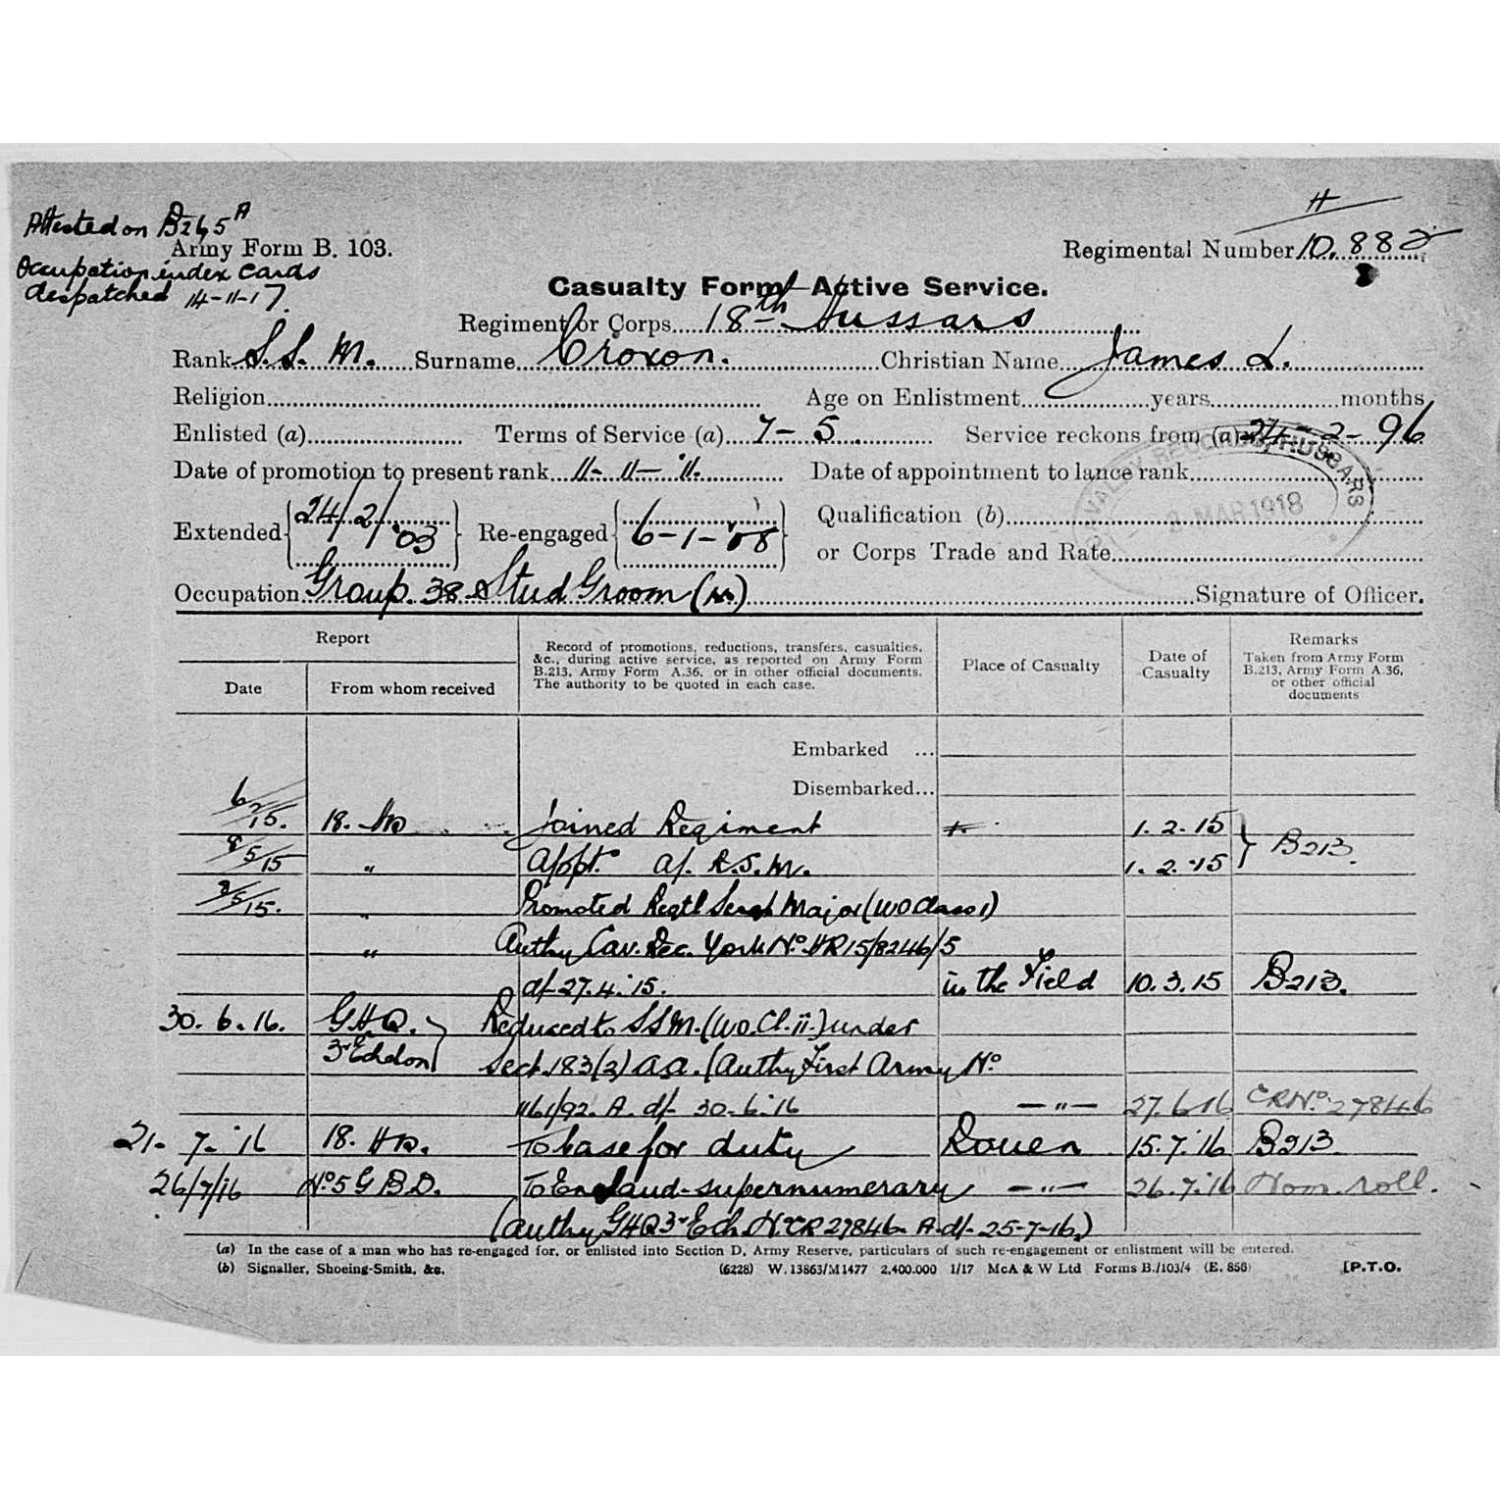 Attested on B265 A
Army Form B. 103.
Occupation index cards
despatched 14-11-17.
H
Regimental Number 10.882
Casualty Form—Active Service.
Regiment or Corps 18th Hussars
Rank S.S.M. Surname Croxon. Christian Name James L.
Religion Age on Enlistment years months
Enlisted (a) Terms of Service (a) 7-5 Service reckons from (a) 24-2-96
Date of promotion to present rank 11-11-11. Date of appointment to lance rank
Extended 24/2/'03 Re-engaged 6-1-'08 Qualification (b)
or Corps Trade and Rate
CAVALRY RECORDS HUSSARS
MAR 1918
Occupation Group. 38. Stud Groom (M.) Signature of Officer.
Report
Date From whom received
Record of promotions, reductions, transfers, casualties,
&c., during active service, as reported on Army Form
B.213, Army Form A.36, or in other official documents.
The authority to be quoted in each case.
Place of Casualty
Date of
Casualty
Remarks
Taken from Army Form
B.213, Army Form A.36,
or other official
documents
Embarked ...
Disembarked...
6/2/15. 18. Joined Regiment 1.2.15
8/5/15 " Appt. A/. R.S.M. 1.2.15 B213.
/5/15. " Promoted Regtl Sergt Major (WO Class 1)
" Authy Cav. Rec. York No. HR15/8246/5
d/- 27.4.15. in the Field 10.3.15 B213.
30.6.16. G.H.Q. Reduced to S.S.M. (W.O. Cl. ii.) under
3rd Echelon Sect. 183(2) A.A. (Authy First Army No
1161/92. A. d/- 30.6.'16 —"— 27.6.16 CR No. 27846
21-7-'16 18. HRS. To base for duty Rouen 15.7.'16 B213.
26/7/16 No 5 G.B.D. To England-supernumerary —"— 26.7.'16 Hom. roll.
(Authy GHQ 3rd Ech. No. CR 27846. A. d/- 25-7-16.)
(a) In the case of a man who has re-engaged for, or enlisted into Section D, Army Reserve, particulars of such re-engagement or enlistment will be entered.
(b) Signaller, Shoeing-Smith, &c. (6228) W. 13863/M1477 2,400,000 1/17 McA & W Ltd Forms B./103/4 (E. 856) [P.T.O.